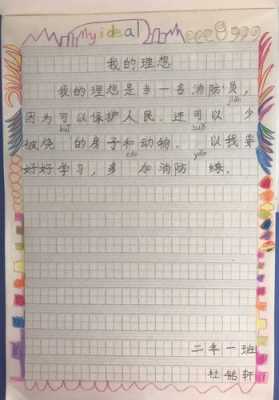 my ideal
我的理想
我的理想是当一名消防员,
因为可以保护人民。还可以 少
被烧 的房子和动物。 以我要
好好学习，多 加消防 练。
二年一班
杜铭轩